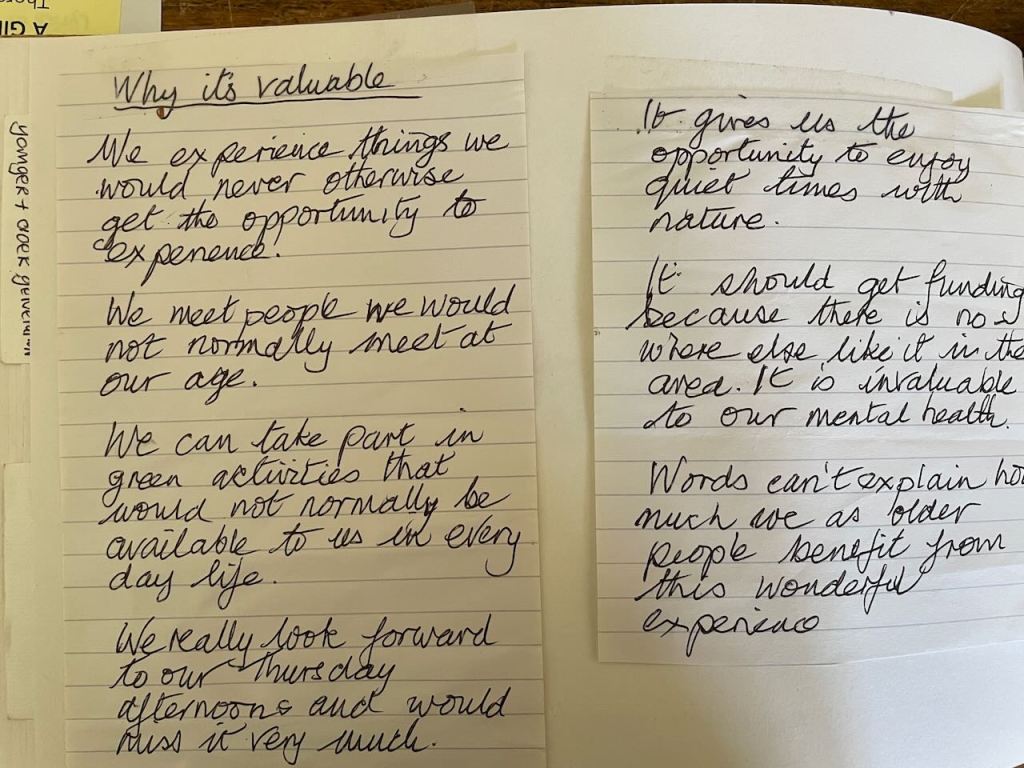 A GI
Why it's valuable
We experience things we
would never otherwise
get the opportunity to
experience.
We meet people we would
not normally meet at
our age.
We can take part in
green activities that
would not normally be
available to us in every
day life.
We really look forward
to our Thursday
afternoons and would
miss it very much.
It gives us the
opportunity to enjoy
quiet times with
nature.
It should get funding
because there is no
where else like it in the
area. It is invaluable
to our mental health.
Words can't explain how
much we as older
people benefit from
this wonderful
experience
younger +